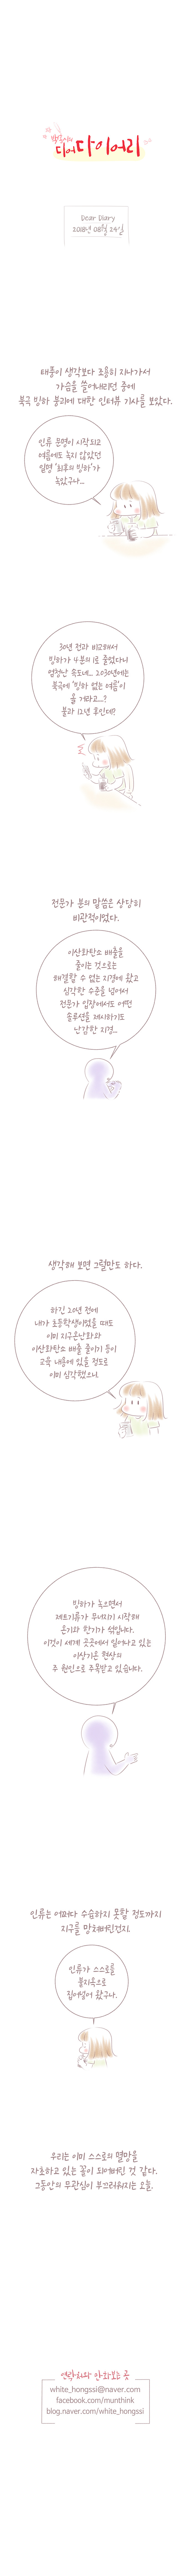 백홍씨의
다어다이어리
Dear Diary
2018년 08월 24일
태풍이 생각보다 조용히 지나가서
가슴을 쓸어내리던 중에
북극 빙하 붕괴에 대한 인터뷰 기사를 보았다.
인류 문명이 시작되고
여름에도 녹지 않았던
일명 '최후의 빙하'가
녹았구나...
30년 전과 비교해서
빙하가 4분의 1로 줄었다니
엄청난 속도네... 2030년에는
북극에 '빙하 없는 여름'이
올 거라고...?
불과 12년 후인데?
전문가 분의 말씀은 상당히
비관적이었다.
이산화탄소 배출을
줄이는 것으로는
해결할 수 없는 지경에 왔고
심각한 수준을 넘어서
전문가 입장에서도 어떤
솔루션을 제시하기도
난감한 지경...
생각해 보면 그럴만도 하다.
하긴 20년 전에
내가 초등학생이었을 때도
이미 지구온난화와
이산화탄소 배출 줄이기 등이
교육 내용에 있을 정도로
이미 심각했으니.
빙하가 녹으면서
제트기류가 무너지기 시작해
온기와 한기가 섞입니다.
이것이 세계 곳곳에서 일어나고 있는
이상기온 현상의
주 원인으로 주목받고 있습니다.
인류는 어쩌다 수습하지 못할 정도까지
지구를 망쳐버린건지.
인류가 스스로를
불지옥으로
집어넣어 왔구나.
우리는 이미 스스로의 멸망을
자초하고 있는 꼴이 되어버린 것 같다.
그동안의 무관심이 부끄러워지는 오늘.
연락처와 만화보는 곳
white_hongssi@naver.com
facebook.com/munthink
blog.naver.com/white_hongssi